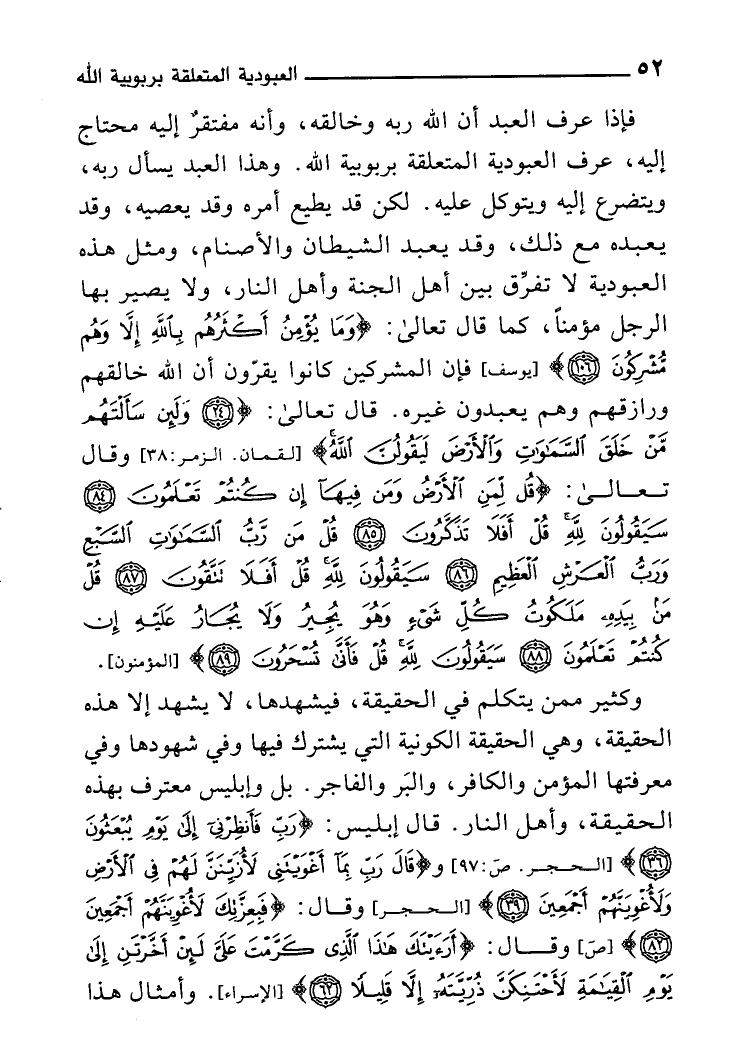 ٥٢ العبودية المتعلقة بربوبية الله
فإذا عرف العبد أن الله ربه وخالقه، وأنه مفتقرٌ إليه محتاج
إليه، عرف العبودية المتعلقة بربوبية الله. وهذا العبد يسأل ربه،
ويتضرع إليه ويتوكل عليه. لكن قد يطيع أمره وقد يعصيه، وقد
يعبده مع ذلك، وقد يعبد الشيطان والأصنام، ومثل هذه
العبودية لا تفرِّق بين أهل الجنة وأهل النار، ولا يصير بها
الرجل مؤمناً، كما قال تعالىٰ: ﴿وَمَا يُؤْمِنُ أَكْثَرُهُم بِاللَّهِ إِلَّا وَهُم
مُّشْرِكُونَ ١٠٦﴾ [يوسف] فإن المشركين كانوا يقرّون أن الله خالقهم
ورازقهم وهم يعبدون غيره. قال تعالىٰ: ﴿٢٤ وَلَئِن سَأَلْتَهُم
مَّنْ خَلَقَ السَّمَٰوَٰتِ وَالْأَرْضَ لَيَقُولُنَّ اللَّهُ﴾ [لقمان. الزمر:٣٨] وقال
تعـالـىٰ: ﴿قُل لِّمَنِ الْأَرْضُ وَمَن فِيهَا إِن كُنتُمْ تَعْلَمُونَ ٨٤
سَيَقُولُونَ لِلَّهِ قُلْ أَفَلَا تَذَكَّرُونَ ٨٥ قُلْ مَن رَّبُّ السَّمَٰوَٰتِ السَّبْعِ
وَرَبُّ الْعَرْشِ الْعَظِيمِ ٨٦ سَيَقُولُونَ لِلَّهِ قُلْ أَفَلَا تَتَّقُونَ ٨٧ قُلْ
مَنۢ بِيَدِهِۦ مَلَكُوتُ كُلِّ شَيْءٍ وَهُوَ يُجِيرُ وَلَا يُجَارُ عَلَيْهِ إِن
كُنتُمْ تَعْلَمُونَ ٨٨ سَيَقُولُونَ لِلَّهِ قُلْ فَأَنَّىٰ تُسْحَرُونَ ٨٩﴾ [المؤمنون].
وكثير ممن يتكلم في الحقيقة، فيشهدها، لا يشهد إلا هذه
الحقيقة، وهي الحقيقة الكونية التي يشترك فيها وفي شهودها وفي
معرفتها المؤمن والكافر، والبَر والفاجر. بل وإبليس معترف بهذه
الحقيقة، وأهل النار. قال إبليس: ﴿رَبِّ فَأَنظِرْنِي إِلَىٰ يَوْمِ يُبْعَثُونَ
٣٦﴾ [الـحجـر. صَ:٩٧] و﴿قَالَ رَبِّ بِمَا أَغْوَيْتَنِي لَأُزَيِّنَنَّ لَهُمْ فِي الْأَرْضِ
وَلَأُغْوِيَنَّهُمْ أَجْمَعِينَ ٣٩﴾ [الـحـجـر] وقال: ﴿فَبِعِزَّتِكَ لَأُغْوِيَنَّهُمْ أَجْمَعِينَ
٨٢﴾ [صَ] وقـــال: ﴿أَرَءَيْتَكَ هَٰذَا الَّذِي كَرَّمْتَ عَلَيَّ لَئِنْ أَخَّرْتَنِ إِلَىٰ
يَوْمِ الْقِيَٰمَةِ لَأَحْتَنِكَنَّ ذُرِّيَّتَهُۥ إِلَّا قَلِيلًا ٦٢﴾ [الإسراء]. وأمثال هذا